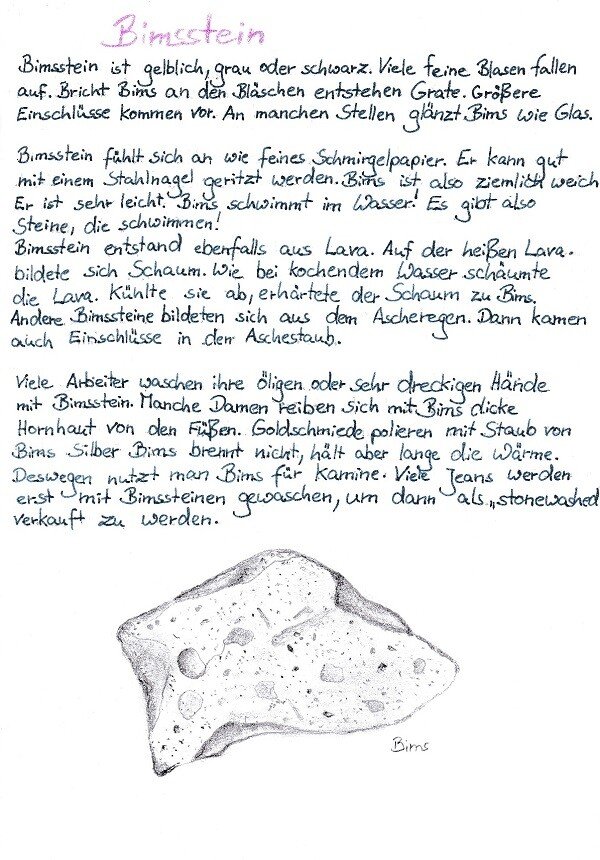 Bimsstein
Bimsstein ist gelblich, grau oder schwarz. Viele feine Blasen fallen
auf. Bricht Bims an den Bläschen entstehen Grate. Größere
Einschlüsse kommen vor. An manchen Stellen glänzt Bims wie Glas.
Bimsstein fühlt sich an wie feines Schmirgelpapier. Er kann gut
mit einem Stahlnagel geritzt werden. Bims ist also ziemlich weich
Er ist sehr leicht. Bims schwimmt im Wasser! Es gibt also
Steine, die schwimmen!
Bimsstein entstand ebenfalls aus Lava. Auf der heißen Lava.
bildete sich Schaum. Wie bei kochendem Wasser schäumte
die Lava. Kühlte sie ab, erhärtete der Schaum zu Bims.
Andere Bimssteine bildeten sich aus dem Ascheregen. Dann kamen
auch Einschlüsse in den Aschestaub.
Viele Arbeiter waschen ihre öligen oder sehr dreckigen Hände
mit Bimsstein. Manche Damen reiben sich mit Bims dicke
Hornhaut von den Füßen. Goldschmiede polieren mit Staub von
Bims Silber Bims brennt nicht, hält aber lange die Wärme.
Deswegen nutzt man Bims für Kamine. Viele Jeans werden
erst mit Bimssteinen gewaschen, um dann als „stonewashed
verkauft zu werden.
Bims